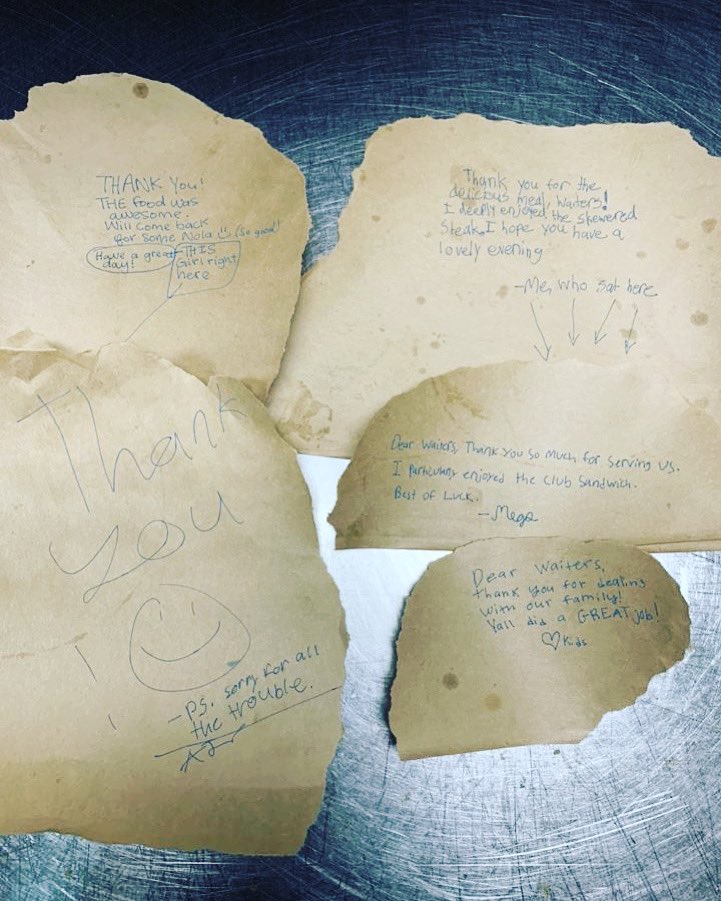 THANK You!
THE food was
awesome.
Will come back
for some Nola (so good!)
Have a great
day!
THIS
Girl right
here
Thank you for the
delicious meal, Waters!
I deeply enjoyed the skewered
steak. I hope you have a
lovely evening
-Me, who sat here
Thank
you
-P.S. sorry for all
the trouble.
Dear Waiters, Thank you so much for serving us.
I particularly enjoyed the club sandwich.
Best of Luck.
Dear Waiters,
thank you for dealing
with our family!
Yall did a GREAT job!
♡ Kids